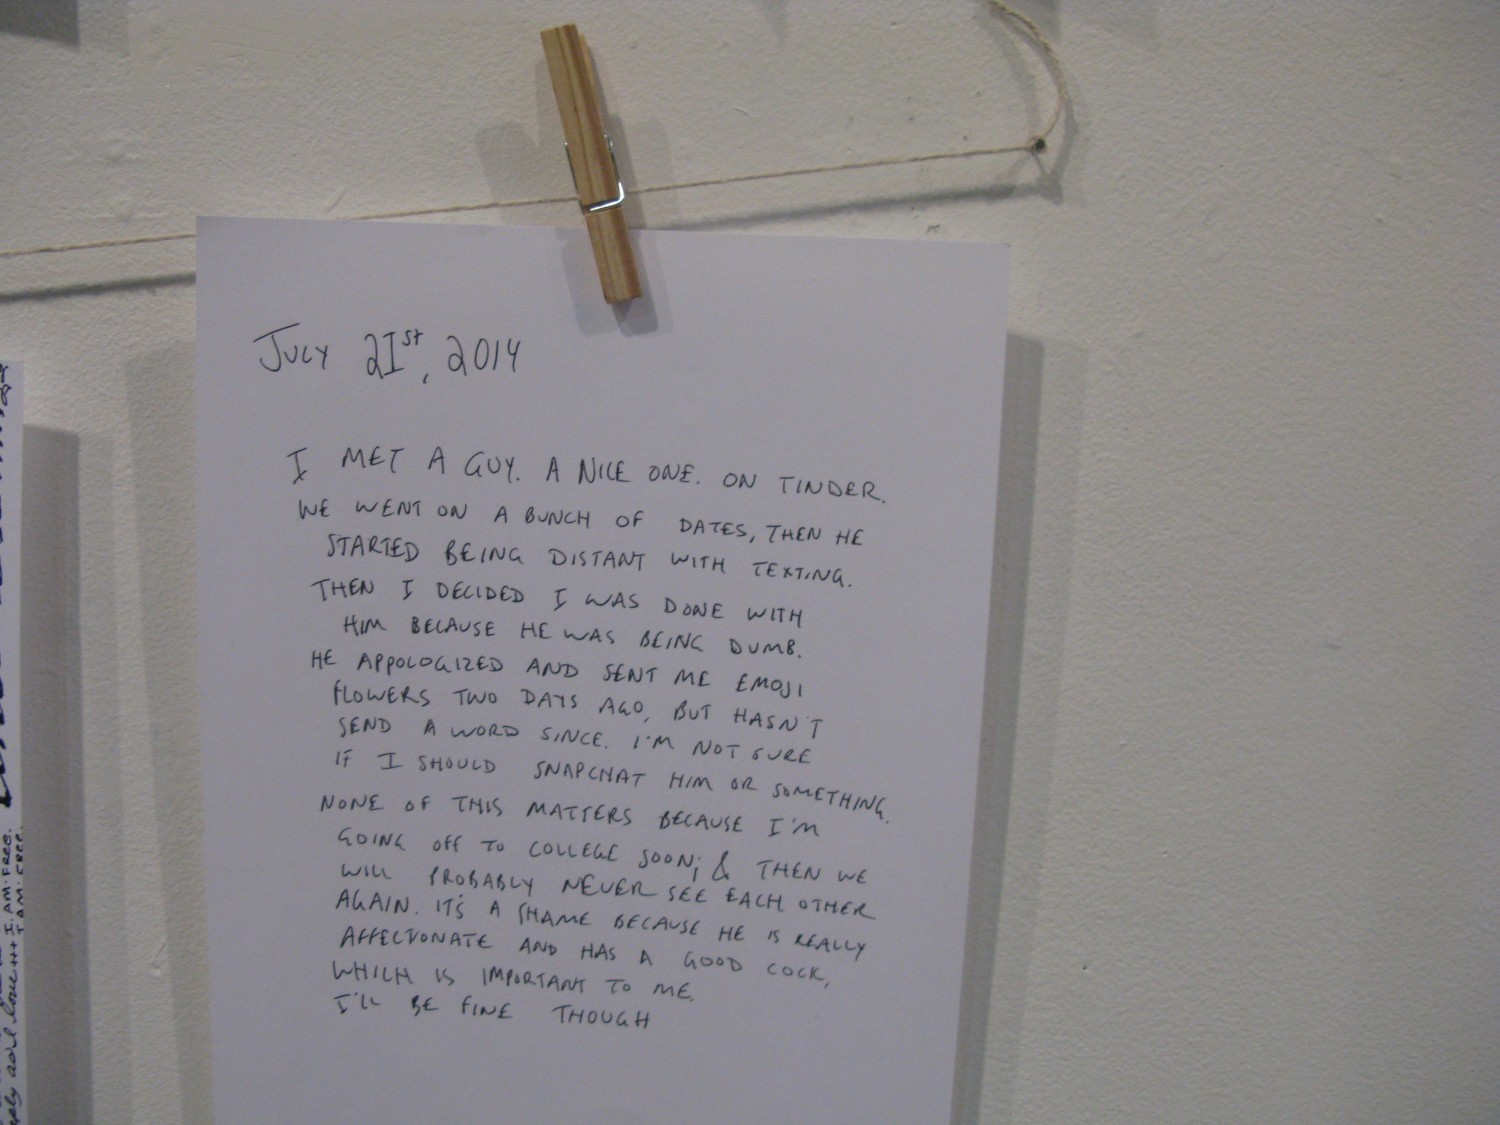 July 21st, 2014
I MET A GUY. A NICE ONE. ON TINDER.
WE WENT ON A BUNCH OF DATES, THEN HE
STARTED BEING DISTANT WITH TEXTING.
THEN I DECIDED I WAS DONE WITH
HIM BECAUSE HE WAS BEING DUMB.
HE APPOLOGIZED AND SENT ME EMOJI
FLOWERS TWO DAYS AGO, BUT HASN'T
SEND A WORD SINCE. I'M NOT SURE
IF I SHOULD SNAPCHAT HIM OR SOMETHING.
NONE OF THIS MATTERS BECAUSE I'M
GOING OFF TO COLLEGE SOON; & THEN WE
WILL PROBABLY NEVER SEE EACH OTHER
AGAIN. IT'S A SHAME BECAUSE HE IS REALLY
AFFECTIONATE AND HAS A GOOD COCK,
WHICH IS IMPORTANT TO ME.
I'LL BE FINE THOUGH
I. AM. FREE.
I. AM. FREE.